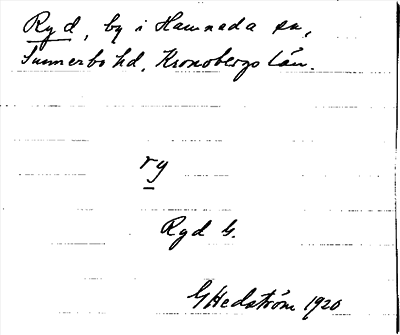 Ryd, by i Hamnada sn,
Sunnerbo hd, Kronobergs län.
ry
Ryd G.
GHedström 1920